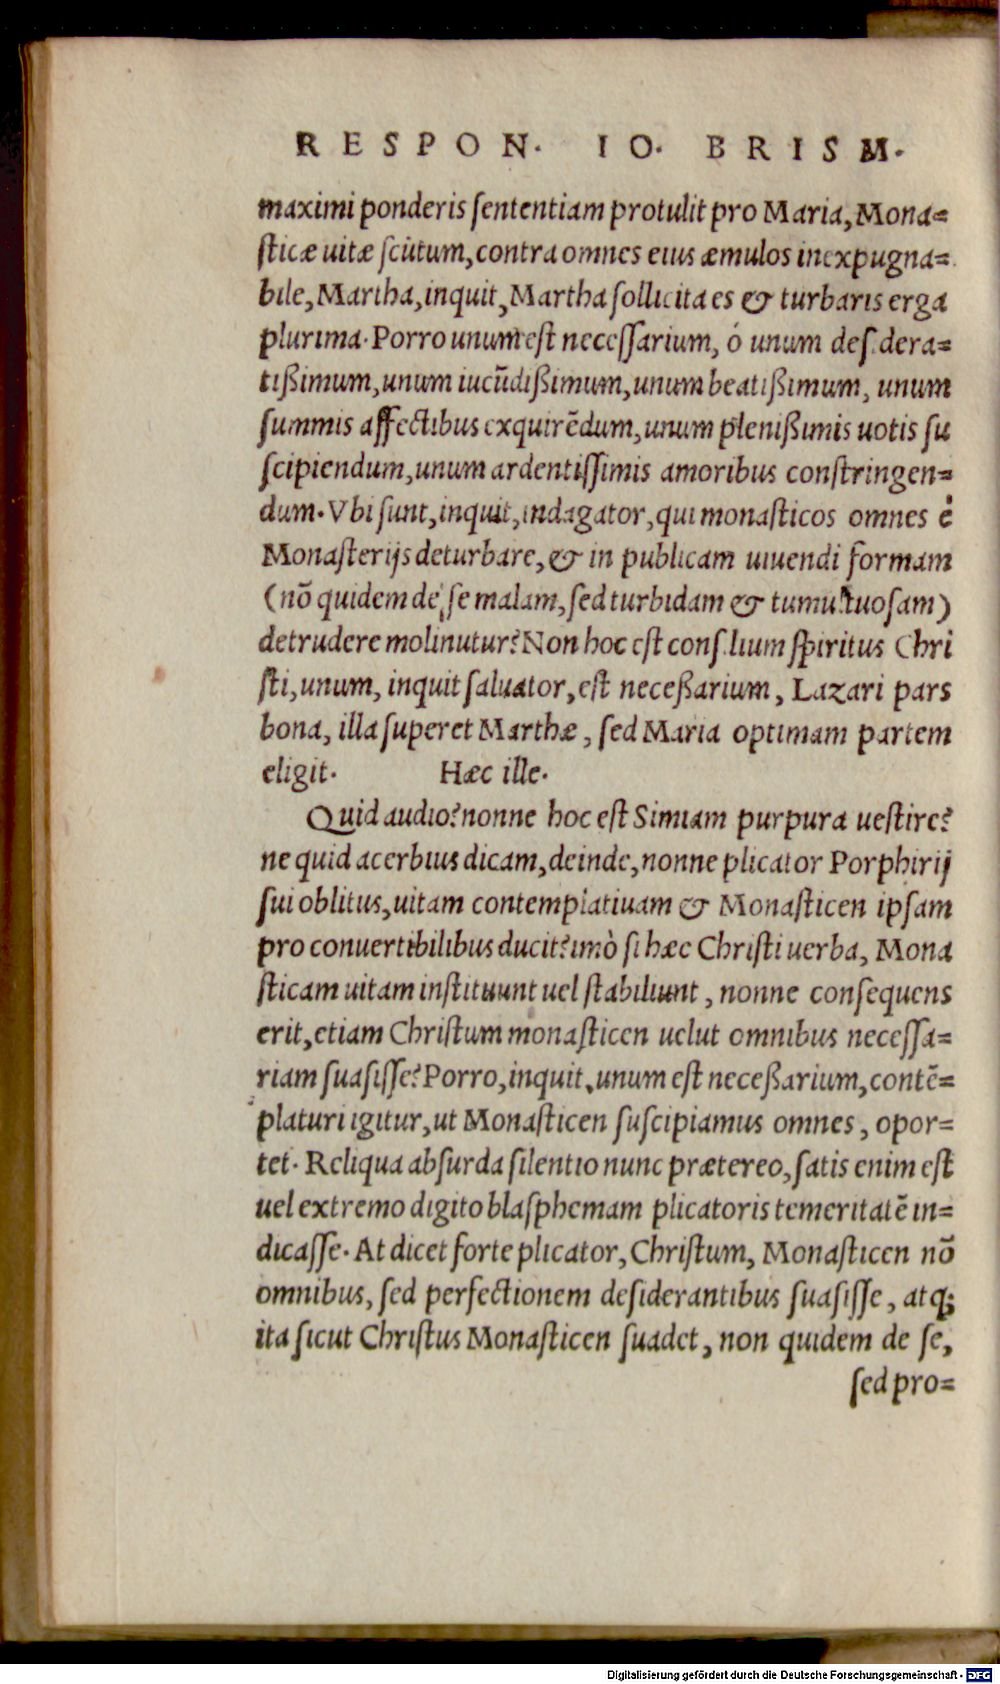 RESPON. IO. BRISM.
maximi ponderis ſententiam protulit pro Maria, Mona=
ſticæ uitæ ſcutum, contra omnes eius æmulos inexpugna=
bile, Martha, inquit, Martha ſollicita es & turbaris erga
plurima. Porro unum eſt neceſſarium, ó unum deſidera=
tißimum, unum iucũdißimum, unum beatißimum, unum
ſummis affectibus exquirẽdum, unum plenißimis uotis ſu
ſcipiendum, unum ardentiſſimis amoribus conſtringen=
dum. Vbi ſunt, inquit, indagator, qui monaſticos omnes è
Monaſterijs deturbare, & in publicam uiuendi formam
(nõ quidem de ſe malam, ſed turbidam & tumultuoſam)
detrudere molinutur? Non hoc eſt conſilium ſpiritus Chri
ſti, unum, inquit ſaluator, eſt neceßarium, Lazari pars
bona, illa ſuperet Marthæ, ſed Maria optimam partem
eligit. Hæc ille.
Quid audio? nonne hoc eſt Simiam purpura ueſtire?
ne quid acerbius dicam, deinde, nonne plicator Porphirij
ſui oblitus, uitam contemplatiuam & Monaſticen ipſam
pro conuertibilibus ducit? imò ſi hæc Chriſti uerba, Mona
ſticam uitam inſtituunt uel ſtabiliunt, nonne conſequens
erit, etiam Chriſtum monaſticen uelut omnibus neceſſa=
riam ſuaſiſſe? Porro, inquit, unum eſt neceßarium, contẽ=
platuri igitur, ut Monaſticen ſuſcipiamus omnes, opor=
tet. Reliqua abſurda ſilentio nunc prætereo, ſatis enim eſt
uel extremo digito blaſphemam plicatoris temeritatẽ in=
dicaſſe. At dicet forte plicator, Chriſtum, Monaſticen nõ
omnibus, ſed perfectionem deſiderantibus ſuaſiſſe, atq;
ita ſicut Chriſtus Monaſticen ſuadet, non quidem de ſe,
ſed pro=
Digitalisierung gefördert durch die Deutsche Forschungsgemeinschaft - DFG